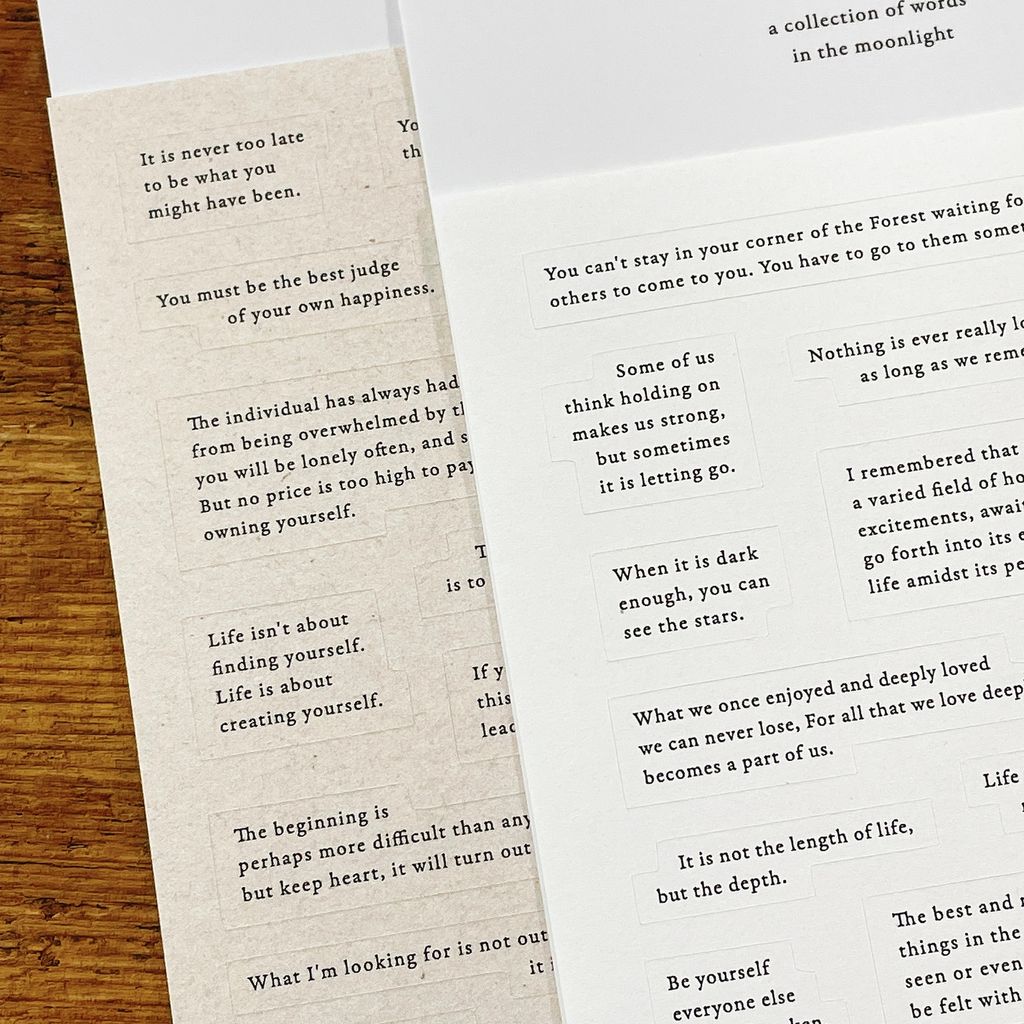 It is never too late
to be what you
might have been.
You must be the best judge
of your own happiness.
The individual has always had
from being overwhelmed by
you will be lonely often, and
But no price is too high to pay
owning yourself.
is to
Life isn't about
finding yourself.
Life is about
creating yourself.
If
this
The beginning is
perhaps more difficult than any
but keep heart, it will turn out
What I'm looking for is not out
it
a collection of words
in the moonlight
You can't stay in your corner of the Forest waiting
others to come to you. You have to go to them
Some of us
think holding on
makes us strong,
but sometimes
it is letting go.
Nothing is ever really
as long as we
I remembered that
a varied field of
excitements,
go forth into its
life amidst its
When it is dark
enough, you can
see the stars.
What we once enjoyed and deeply loved
we can never lose, For all that we love
becomes a part of us.
Life
It is not the length of life,
but the depth.
The best and
things in the
seen or even
be felt with
Be yourself
everyone else